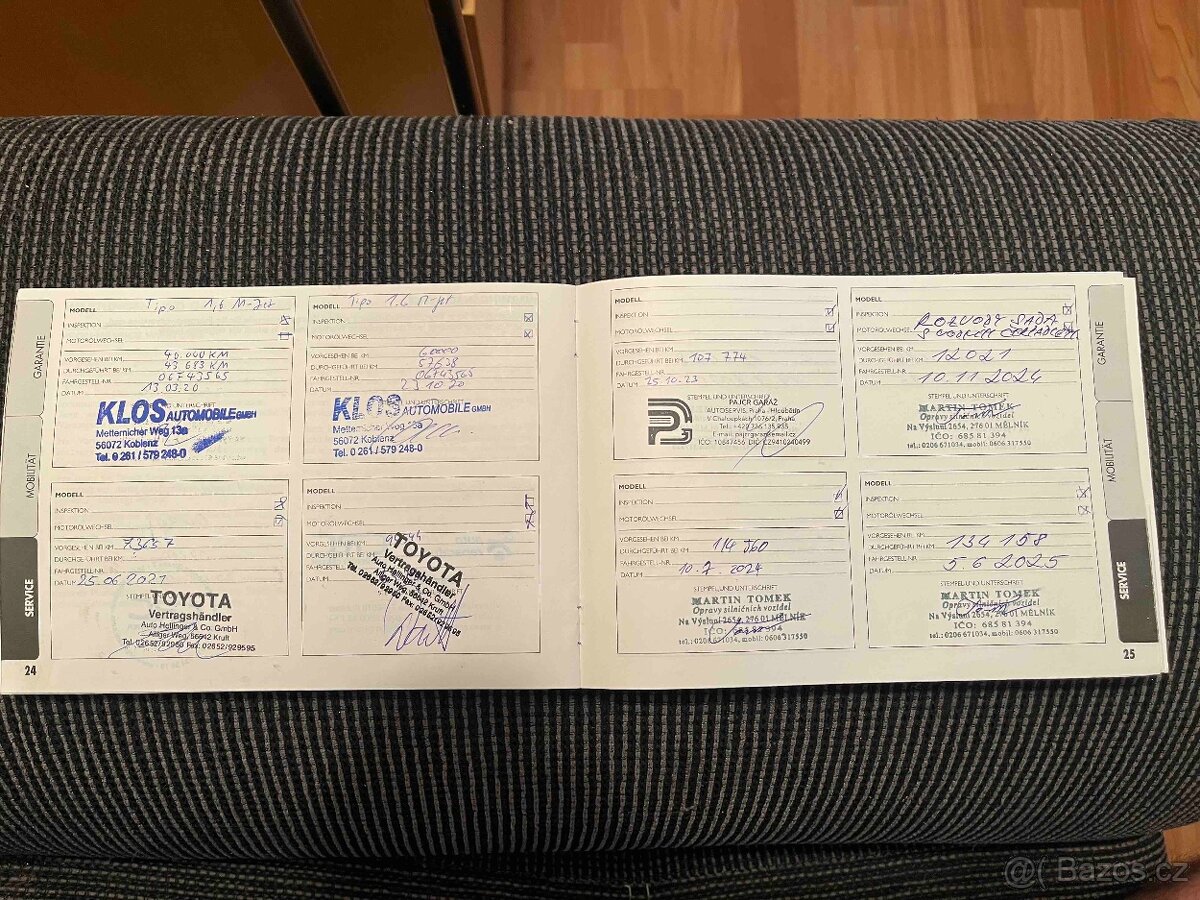 MODELL Tipo 1,6 M-Jet
INSPEKTION
MOTORÖLWECHSEL
VORGESEHEN BEI KM
DURCHGEFÜHRT BEI KM 43 683 KM
FAHRGESTELL-NR. 06743565
DATUM 13 03.20
KLOS AUTOMOBILE GMBH
Metternicher Weg 13a
56072 Koblenz
Tel. 0 261 / 579 248-0
MODELL Tipo 1.6 M-Jet
INSPEKTION
MOTORÖLWECHSEL
VORGESEHEN BEI KM 60000
DURCHGEFÜHRT BEI KM
FAHRGESTELL-NR. 06743565
DATUM 23 10 20
KLOS AUTOMOBILE GMBH
Metternicher Weg 13a
56072 Koblenz
Tel. 0 261 / 579 248-0
MODELL
INSPEKTION
MOTORÖLWECHSEL
VORGESEHEN BEI KM 73657
DURCHGEFÜHRT BEI KM
FAHRGESTELL-NR.
DATUM 25.06 2021
TOYOTA
Vertragshändler
Auto Hollinger & Co. GmbH
Allger Weg, 56642 Kruft
Tel. 02652/92950 Fax: 02652/929595
MODELL
INSPEKTION
MOTORÖLWECHSEL
VORGESEHEN BEI KM
DURCHGEFÜHRT BEI KM
FAHRGESTELL-NR.
DATUM
TOYOTA
Vertragshändler
Auto Hollinger & Co. GmbH
Allger Weg, 56642 Kruft
MODELL
INSPEKTION
MOTORÖLWECHSEL
VORGESEHEN BEI KM
DURCHGEFÜHRT BEI KM 107.774
FAHRGESTELL-NR.
DATUM 25.10.23
STEMPEL UND UNTERSCHRIFT
PAJCR GARÁŽ
AUTOSERVIS, Praha - Hloubětín
MODELL
INSPEKTION ROZVODY SADA
MOTORÖLWECHSEL S VODNÍM ČERPADLEM
VORGESEHEN BEI KM
DURCHGEFÜHRT BEI KM 12021
FAHRGESTELL-NR.
DATUM 10.11 2024
STEMPEL UND UNTERSCHRIFT
MARTIN TOMEK
Opravy silničních vozidel
Na Výsluní 2654, 276 01 MĚLNÍK
IČO: 685 81 394
tel.: 0206 671034, mobil: 0606 317550
MODELL
INSPEKTION
MOTORÖLWECHSEL
VORGESEHEN BEI KM
DURCHGEFÜHRT BEI KM 114 560
FAHRGESTELL-NR.
DATUM 10.7 2024
STEMPEL UND UNTERSCHRIFT
MARTIN TOMEK
Opravy silničních vozidel
Na Výsluní 2654, 276 01 MĚLNÍK
IČO: 685 81 394
tel.: 0206 671034, mobil: 0606 317550
MODELL
INSPEKTION
MOTORÖLWECHSEL
VORGESEHEN BEI KM
DURCHGEFÜHRT BEI KM 134 158
FAHRGESTELL-NR.
DATUM 5 6 2025
STEMPEL UND UNTERSCHRIFT
MARTIN TOMEK
Opravy silničních vozidel
Na Výsluní 2654, 276 01 MĚLNÍK
IČO: 685 81 394
tel.: 0206 671034, mobil: 0606 317550
GARANTIE
MOBILITÄT
SERVICE
24
GARANTIE
MOBILITÄT
SERVICE
25
Bazos.cz